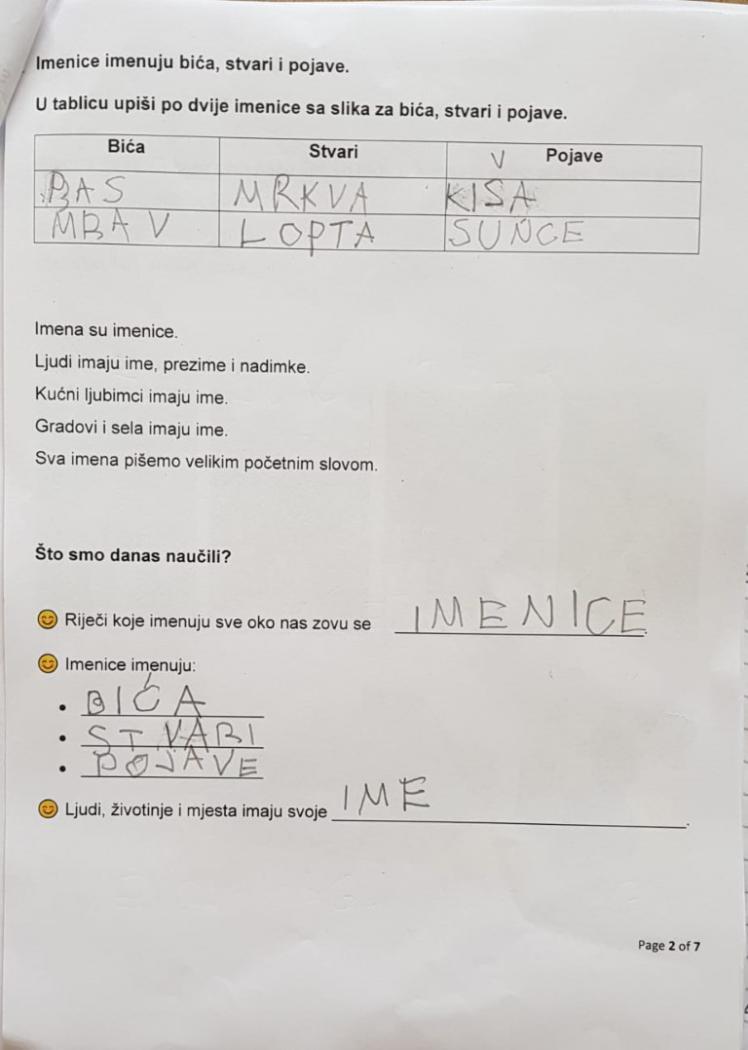 Imenice imenuju bića, stvari i pojave.
U tablicu upiši po dvije imenice sa slika za bića, stvari i pojave.
Bića Stvari Pojave
PAS MRKVA KIŠA
MRAV LOPTA SUNCE
Imena su imenice.
Ljudi imaju ime, prezime i nadimke.
Kućni ljubimci imaju ime.
Gradovi i sela imaju ime.
Sva imena pišemo velikim početnim slovom.
Što smo danas naučili?
Riječi koje imenuju sve oko nas zovu se IMENICE.
Imenice imenuju:
• BIĆA
• STVARI
• POJAVE
Ljudi, životinje i mjesta imaju svoje IME.
Page 2 of 7